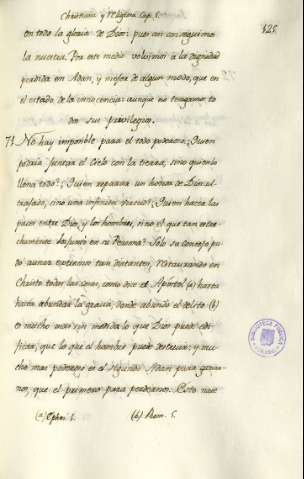 Christiana y Religiosa Cap. 5.
125.
en todo la gloria de Dios: pues asi conseguimos
la nuestra. Por este medio volvemos a la dignidad
perdida en Adan, y mejor de algun modo, que en
el estado de la inocencia: aunque no tengamos to
dos sus privilegios.
73. No hay imposible para el todo poderoso. ¿Quien
podria juntar el Cielo con la tierra, sino quien lo
llena todo? ¿Quien reparar un honor de Dios ul
trajado, sino una infinita virtud? ¿Quien hacer las
paces entre Dios, y los hombres, sino el que tan estre
chamente los juntó en su Persona? Solo su consejo pu
do aunar extremos tan distantes, restaurando en
Christo todas las cosas, como dice el Apostol (a) hasta
hacer abundar la gracia, donde abundó el delito (b)
es mucho mas sin medida lo que Dios puede edi
ficar, que lo que el hombre puede destruir: y mu
cho mas poderoso es el segundo Adan para ganar
nos, que el primero para perdernos. Esto nace
(a) Ephes. 1. (b) Rom. 5.
BIBLIOTECA PUBLICA